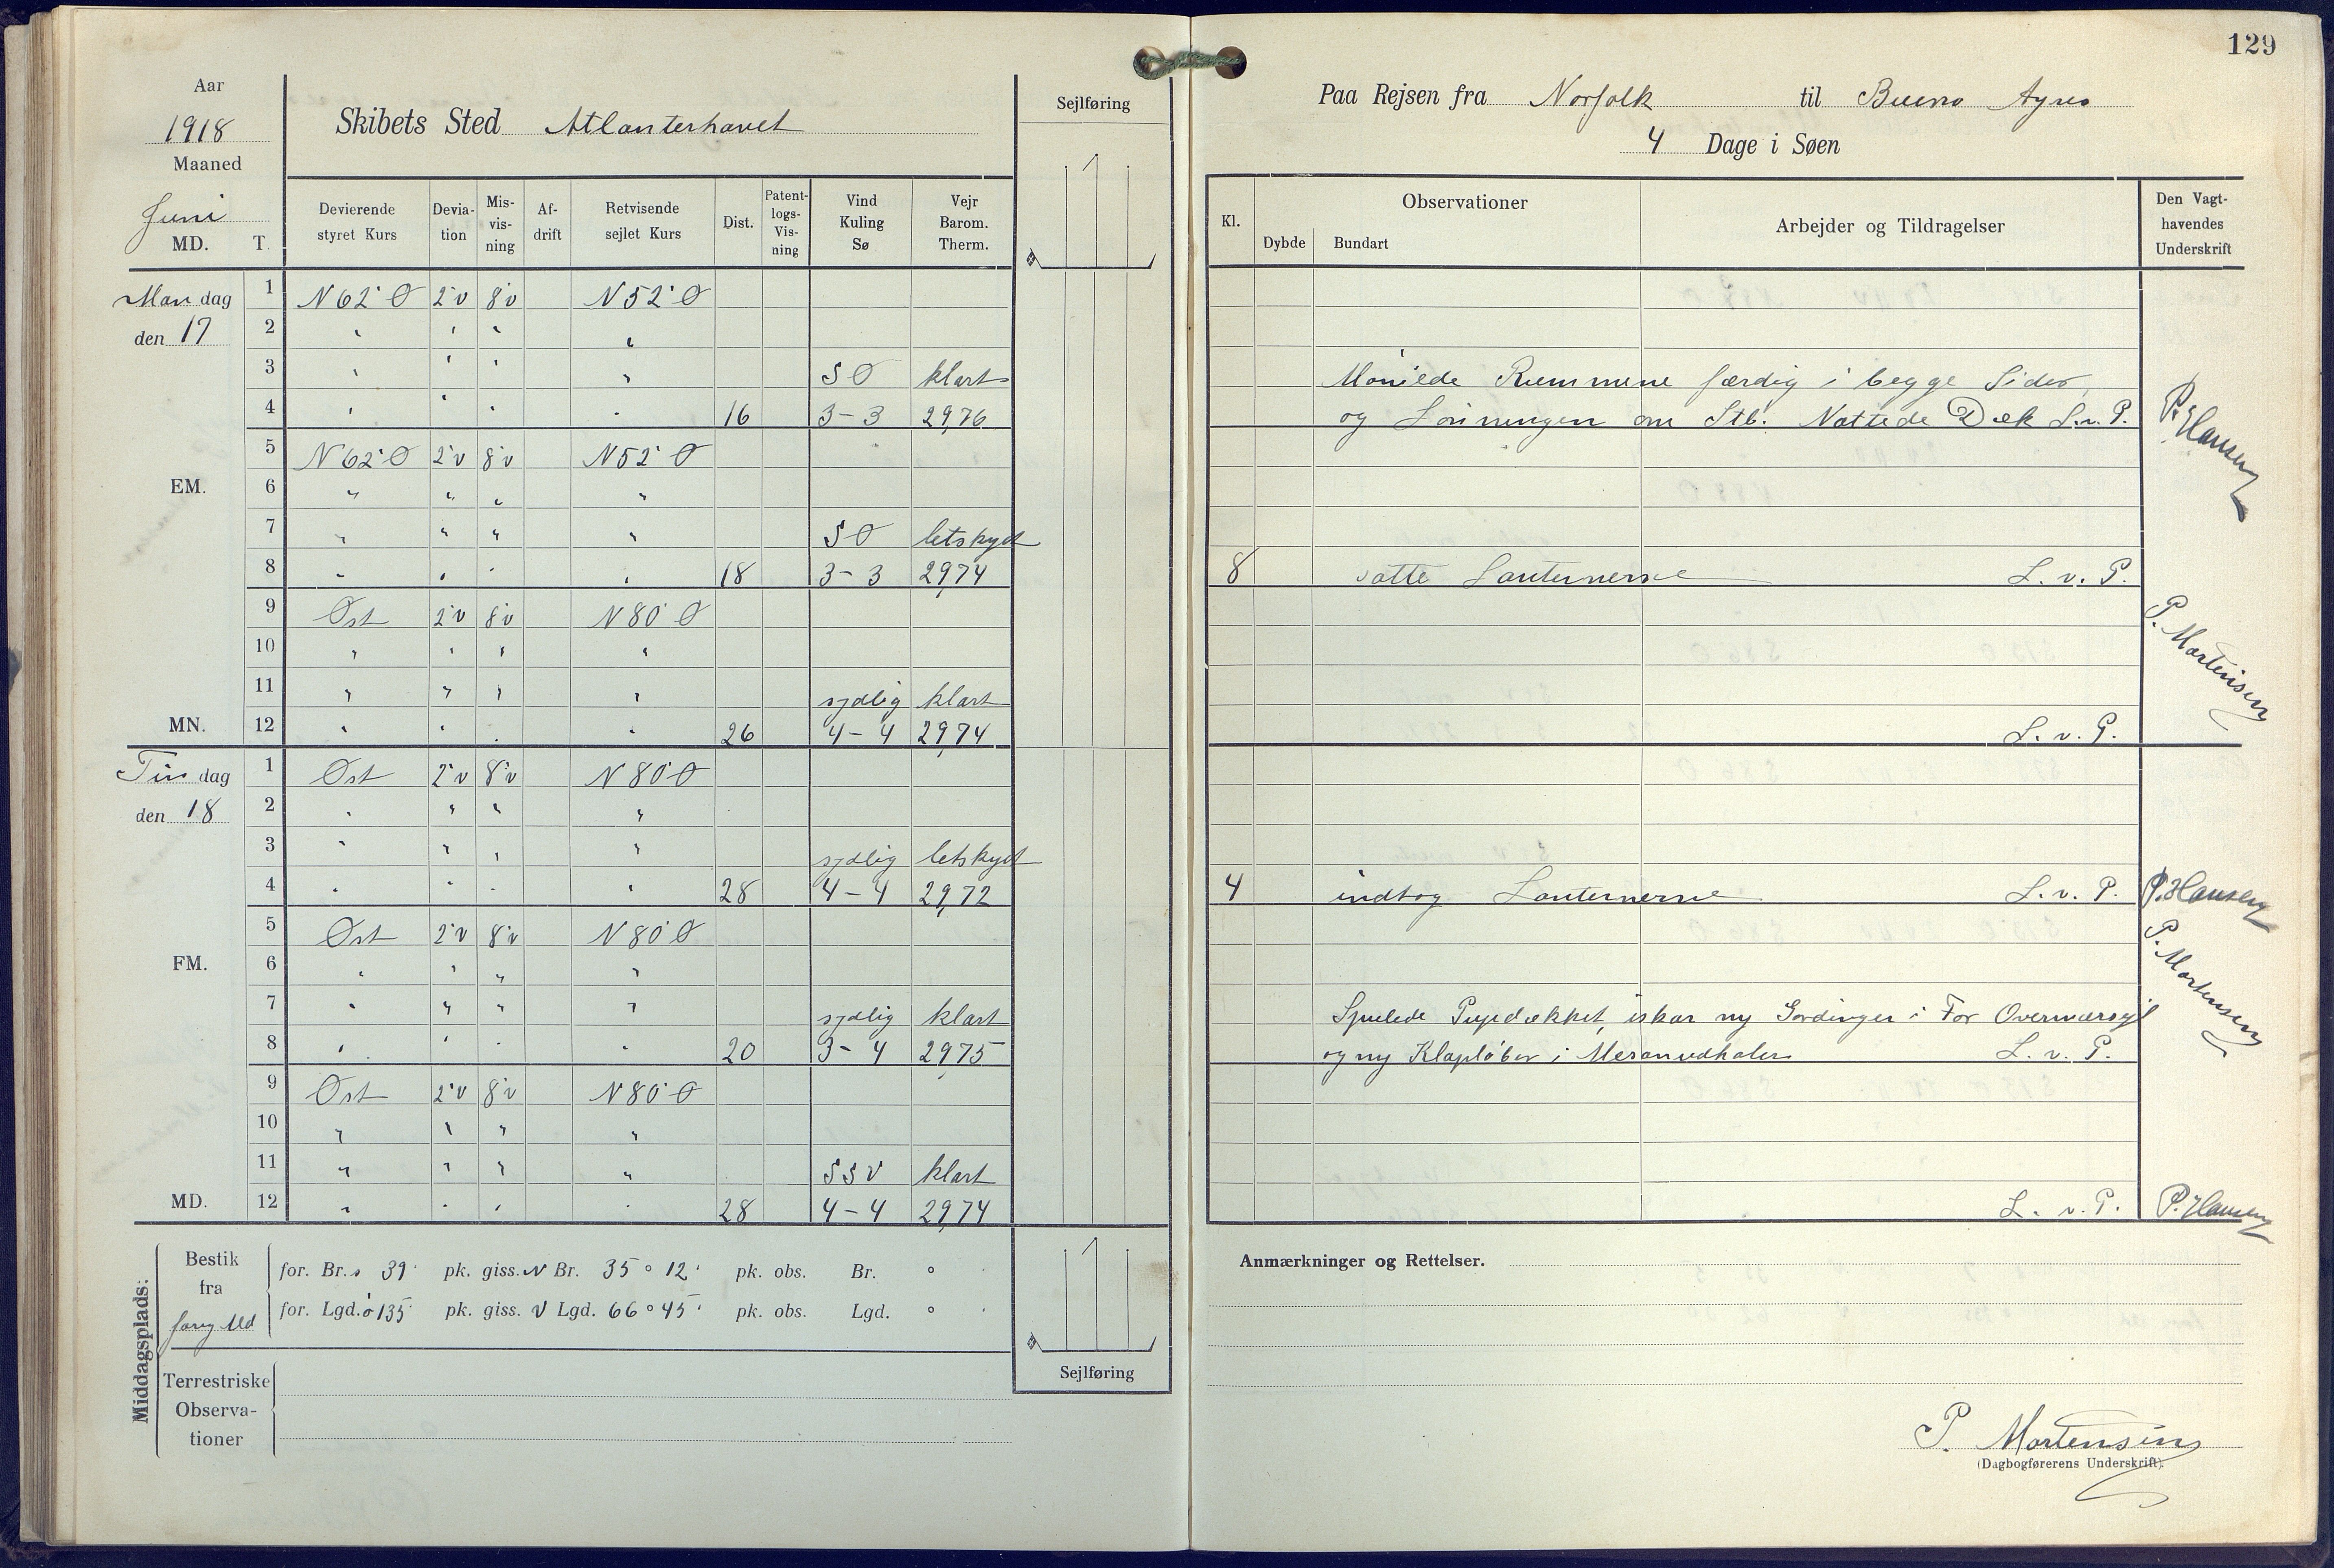 129
Aar
1918
Maaned
Juni
MD. T.
Skibets Sted Atlanterhavet
Sejlføring
Paa Rejsen fra Norfolk til Bueno Ayres
4 Dage i Søen
Devierende styret Kurs | Devia-tion | Mis-vis-ning | Af-drift | Retvisende sejlet Kurs | Dist. | Patent-logs-Vis-ning | Vind Kuling Sø | Vejr Barom. Therm.
Kl. | Observationer | Dybde | Bundart | Arbejder og Tildragelser | Den Vagt-havendes Underskrift
Man dag 1 N 62° Ø 2°v 8°v N 52° Ø
den 17 2 " " " "
3 " " " " SØ klart Møniede Rummene færdig i begge Sider,
4 " " " " 16 3-3 29,76 og Lønningen om Stb. Nattede Dæk L.v.P. P. Hansen
5 N 62° Ø 2°v 8°v N 52° Ø
EM. 6 " " " "
7 " " " " SØ letskyet
8 " " " " 18 3-3 29,74 8 satte Lanternerne L. v. P.
9 Øst 2°v 8°v N 80° Ø P. Mortensen
10 " " " "
11 " " " " sydlig klart
MN. 12 " " " " 26 4-4 29,74 L. v. P.
Tirs dag 1 Øst 2°v 8°v N 80° Ø
den 18 2 " " " "
3 " " " " sydlig letskyet
4 " " " " 28 4-4 29,72 4 indtog Lanternerne L. v. P. P. Hansen
5 Øst 2°v 8°v N 80° Ø P. Mortensen
FM. 6 " " " "
7 " " " " sydlig klart Spulede Pupdækket, iskar ny Gordinger i For Overmærssejl
8 " " " " 20 3-4 29,75 og ny Klapløber i L. v. P.
9 Øst 2°v 8°v N 80° Ø
10 " " " "
11 " " " " SSV klart
MD. 12 " " " " 28 4-4 29,74 L. v. P. P. Hansen
Middagsplads:
Bestik
fra
for. Br. s 39' pk. giss. N Br. 35° 12' pk. obs. Br. ° '
for. Lgd. ø 135' pk. giss. V Lgd. 66° 45' pk. obs. Lgd. ° '
Sejlføring
Terrestriske
Observa-
tioner
Anmærkninger og Rettelser.
P. Mortensen
(Dagbogførerens Underskrift).